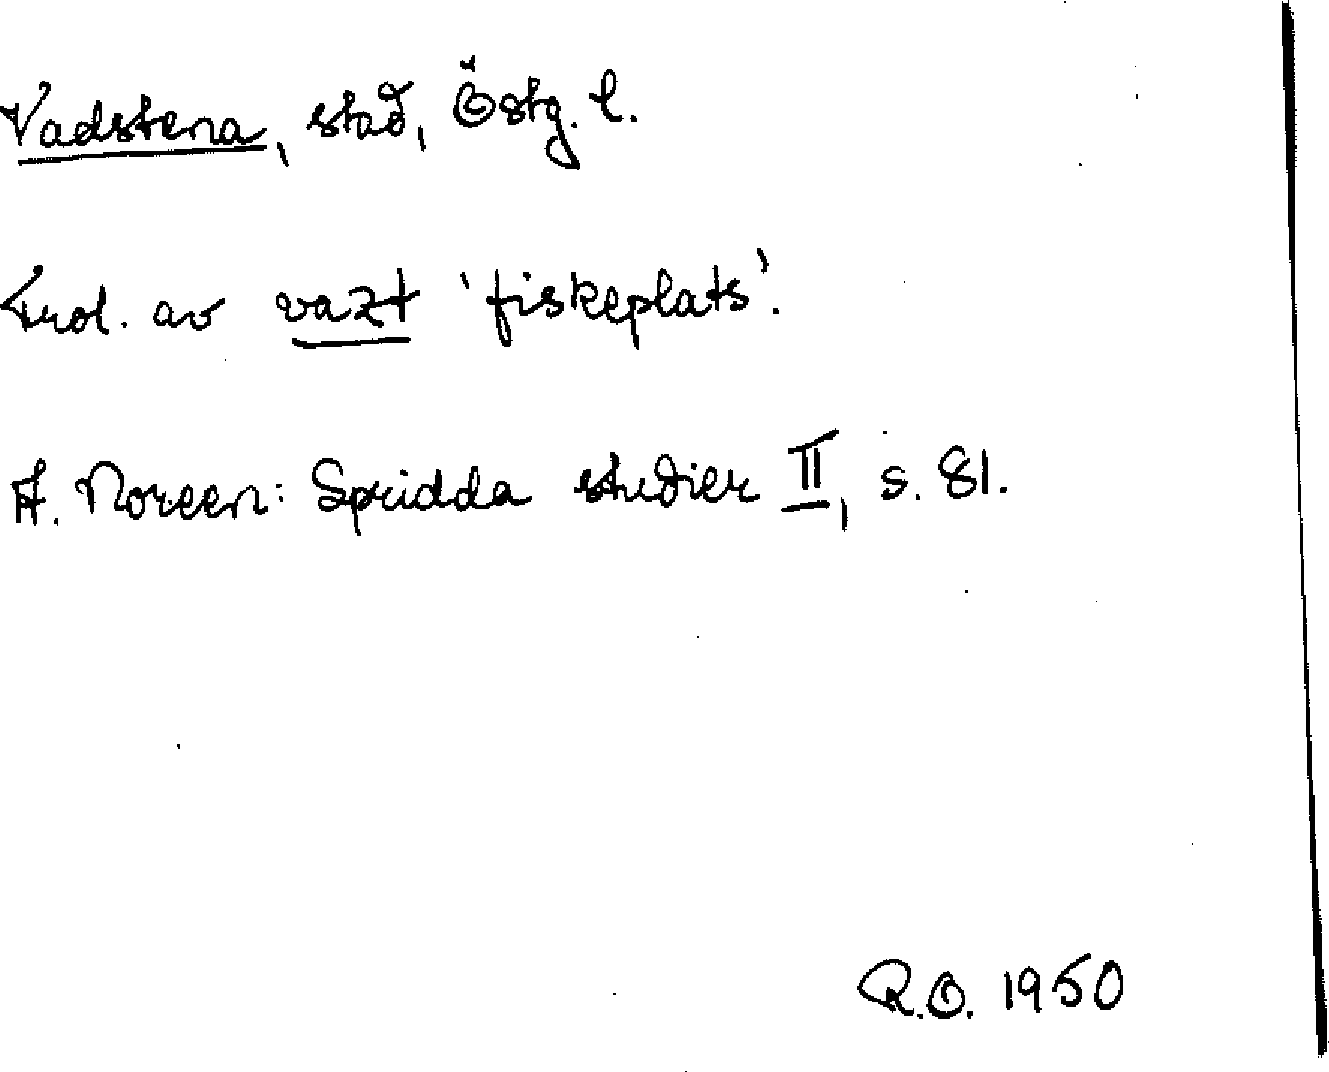 Vadstena, stad, Östg. l.
Trol. av vazt 'fiskeplats'.
A. Noreen: Spridda studier II, s. 81.
R.O. 1950